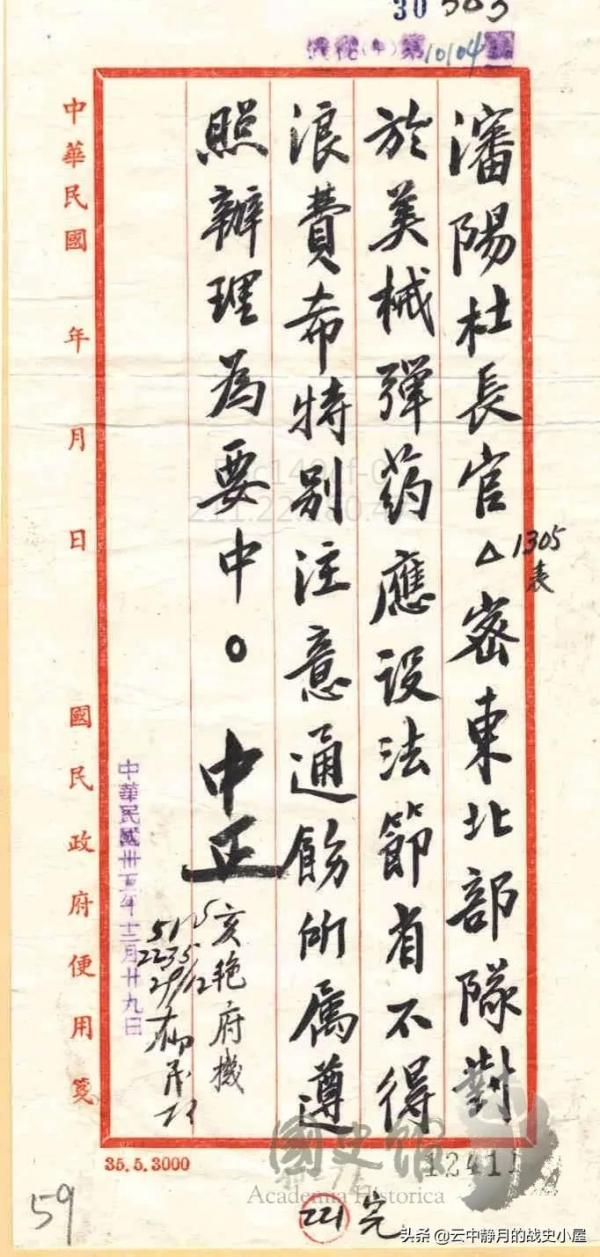 30303
第10104號
瀋陽杜長官△密東北部隊對
1305
表
於美械彈药應设法節省不得
浪費希特别注意通飭所属遵
照辦理為要中。中正
亥艳府機
2235
29/12
中華民國卅五年十二月廿九日
中華民國 年 月 日 國民政府便用箋
35.5.3000
12411
國史館
Academia Historica
59
221
完
头条 @云中静月的战史小屋